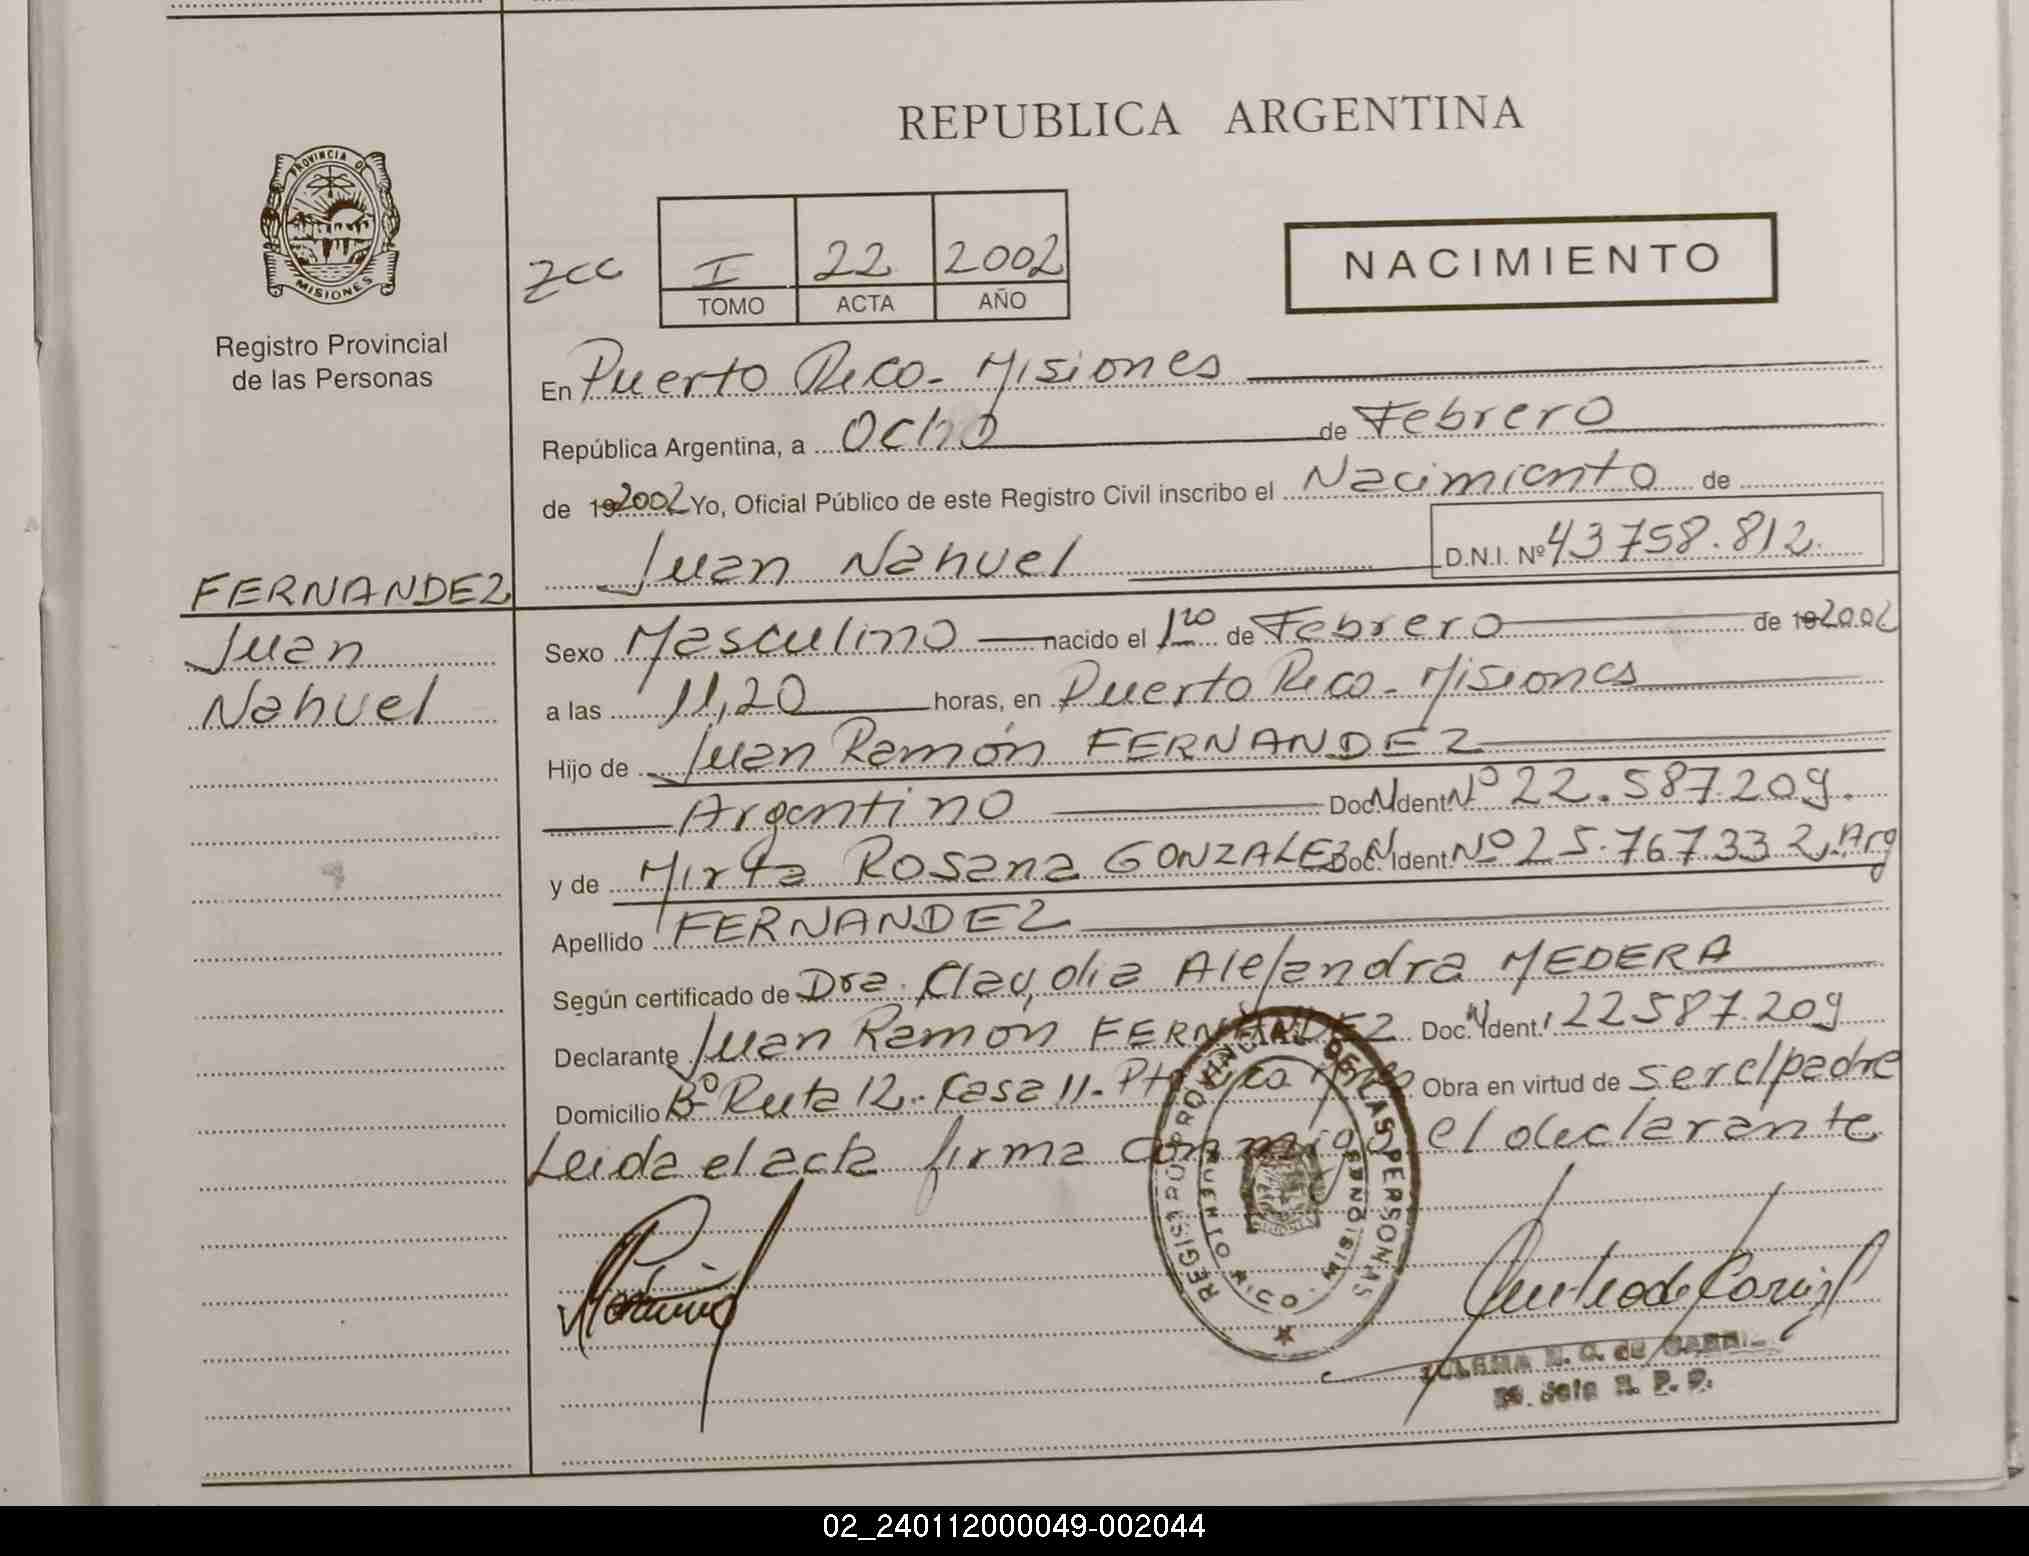 REPUBLICA ARGENTINA
PROVINCIA DE
MISIONES
Registro Provincial
de las Personas
zcc
I 22 2002
TOMO ACTA AÑO
NACIMIENTO
En Puerto Rico - Misiones
República Argentina, a Ocho de Febrero
de 192002 Yo, Oficial Público de este Registro Civil inscribo el Nacimiento de
Juan Nahuel D.N.I. Nº 43758.812.
FERNANDEZ
Juan
Nahuel
Sexo Masculino nacido el 1ro de Febrero de 192002
a las 11,20 horas, en Puerto Rico - Misiones
Hijo de Juan Ramón FERNANDEZ
Argentino Doc. N. Ident. Nº 22.587.209.
y de Mirta Rosana GONZALEZ Doc. N. Ident. Nº 25.767.332. Arg
Apellido FERNANDEZ
Según certificado de Dra. Claudia Alejandra MEDERA
Declarante Juan Ramón FERNANDEZ Doc. N. Ident. 22587.209
Domicilio Bº Ruta 12 - Casa 11 - Pto Obra en virtud de ser el padre
Leida el acta firma conmigo el declarante
REGISTRO PROVINCIAL DE LAS PERSONAS
MISIONES
de
Jefa R. P. P.
02_240112000049-002044